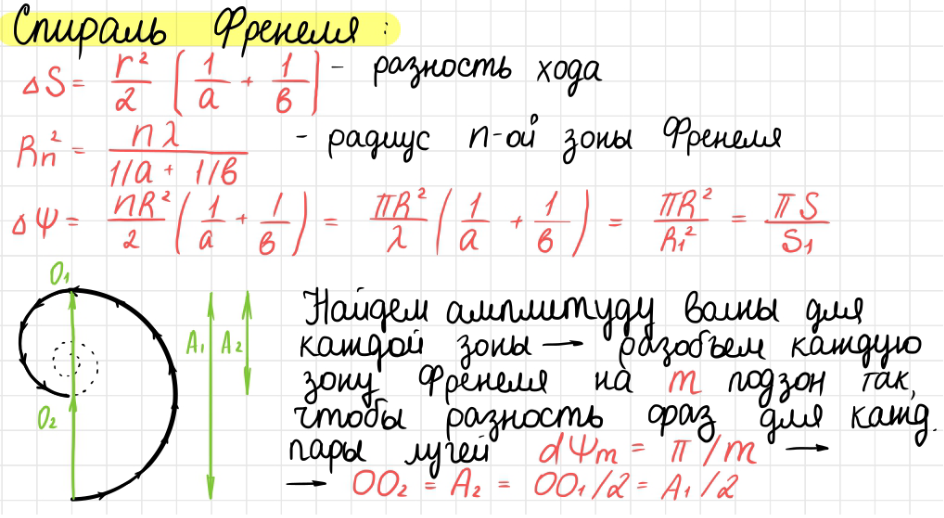 Спираль Френеля:
ΔS = r²/2 (1/a + 1/b) - разность хода
Rn² = nλ / (1/a + 1/b) - радиус n-ой зоны Френеля
ΔΨ = nR²/2 (1/a + 1/b) = πR²/λ (1/a + 1/b) = πR²/R₁² = πS/S₁
O₁
A₁ A₂
O₂
Найдем амплитуду волны для
каждой зоны → разобьем каждую
зону Френеля на m подзон так,
чтобы разность фаз для кажд.
пары лучей dΨm = π/m →
→ OO₂ = A₂ = OO₁/2 = A₁/2